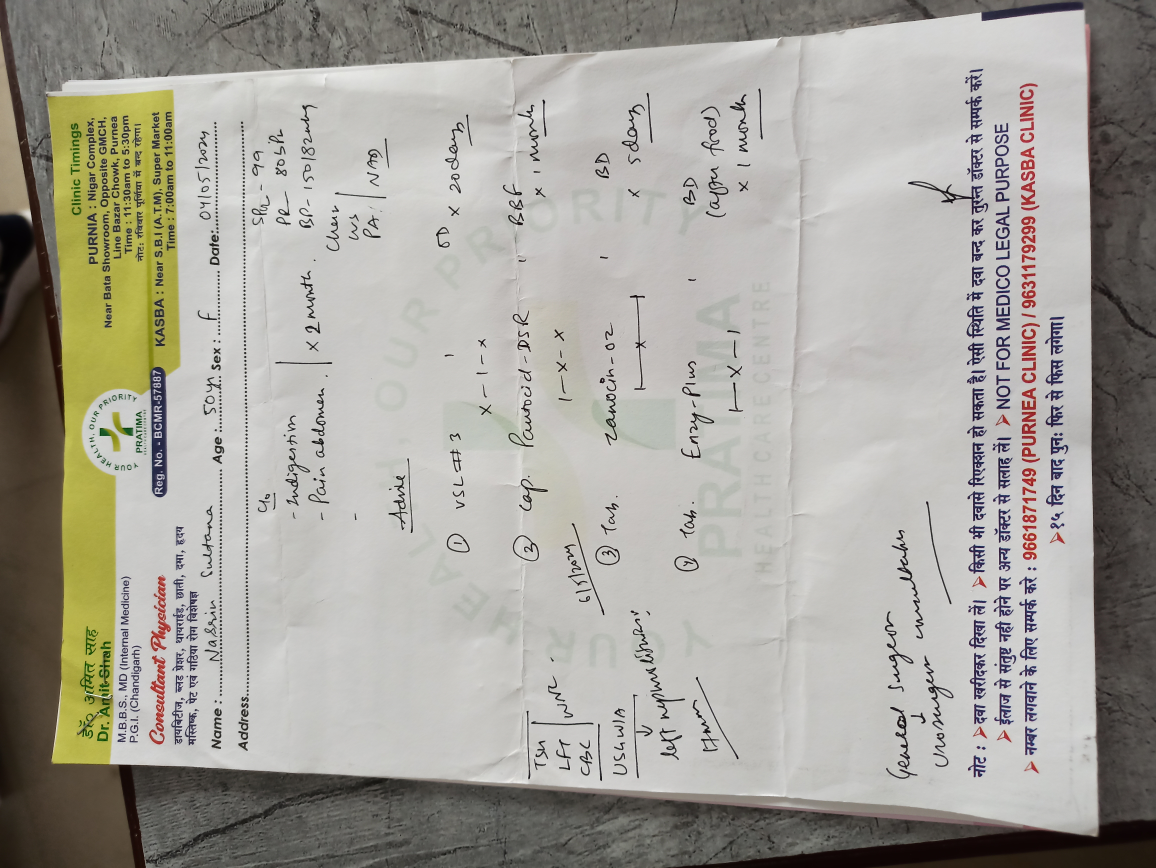 डॉ० अमित साह
Dr. Amit Shah
M.B.B.S., MD (Internal Medicine)
P.G.I. (Chandigarh)
Consultant Physician
डायबिटीज, ब्लड प्रेशर, थायराईड, छाती, दमा, हृदय
मस्तिष्क, पेट एवं गठिया रोग विशेषज्ञ
YOUR HEALTH, OUR PRIORITY
PRATIMA
Reg. No. - BCMR-57887
Clinic Timings
PURNIA : Nilgar Complex,
Near Bata Showroom, Opposite GMCH,
Line Bazar Chowk, Purnea
Time : 11:30am to 5:30pm
नोट: रविवार पूर्णिया में बन्द रहेगा।
KASBA : Near S.B.I (A.T.M), Super Market
Time : 7:00am to 11:00am
Name : Nasrin Sultana Age : 50y Sex : F Date: 04/05/2024
Address
c/o
- Indigestion
- Pain abdomen. | x 2 month.
-
SPO2 - 99
PR - 80
BP - 150/82
Chest
P/A | NAD
Advise
① VSL #3 1 OD x 20 days
x - 1 - x
② Cap. Pantocid-DSR 1 BBF x 1 month
1 - x - x
③ Tab. Zanocin-OZ 1 BD x 5 days
1 - x - 1
④ Tab. Enzy-Plus 1 BD (after food) x 1 month
1 - x - 1
6/5/2024
TSH
LFT
CBC | WNL
USG W/A
↓
left nephrolithiasis
General Surgeon
↓
Urosurgeon consultation
YOUR HEALTH, OUR PRIORITY
PRATIMA
HEALTH CARE CENTRE
नोट : ➤ दवा खरीदकर दिखा लें। ➤ किसी भी दवासे रिएक्सन हो सकता है। ऐसी स्थिति में दवा बन्द कर तुरन्त डॉक्टर से सम्पर्क करें।
➤ ईलाज से संतुष्ट नही होने पर अन्य डॉक्टर से सलाह लें। ➤ NOT FOR MEDICO LEGAL PURPOSE
➤ नम्बर लगवाने के लिए सम्पर्क करे : 9661871749 (PURNEA CLINIC) / 9631179299 (KASBA CLINIC)
➤ १५ दिन बाद पुन: फिर से फिस लगेगा।